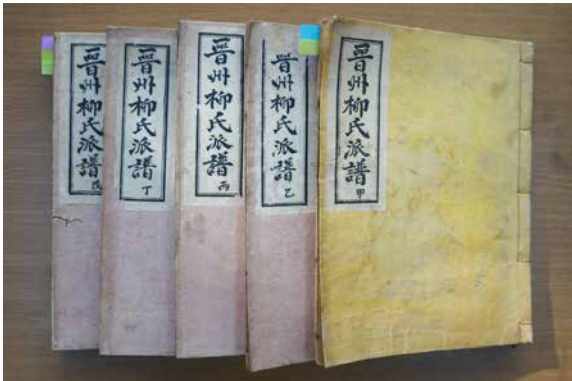 晉州柳氏派譜 甲
晉州柳氏派譜 乙
晉州柳氏派譜 丙
晉州柳氏派譜 丁
晉州柳氏派譜 戊